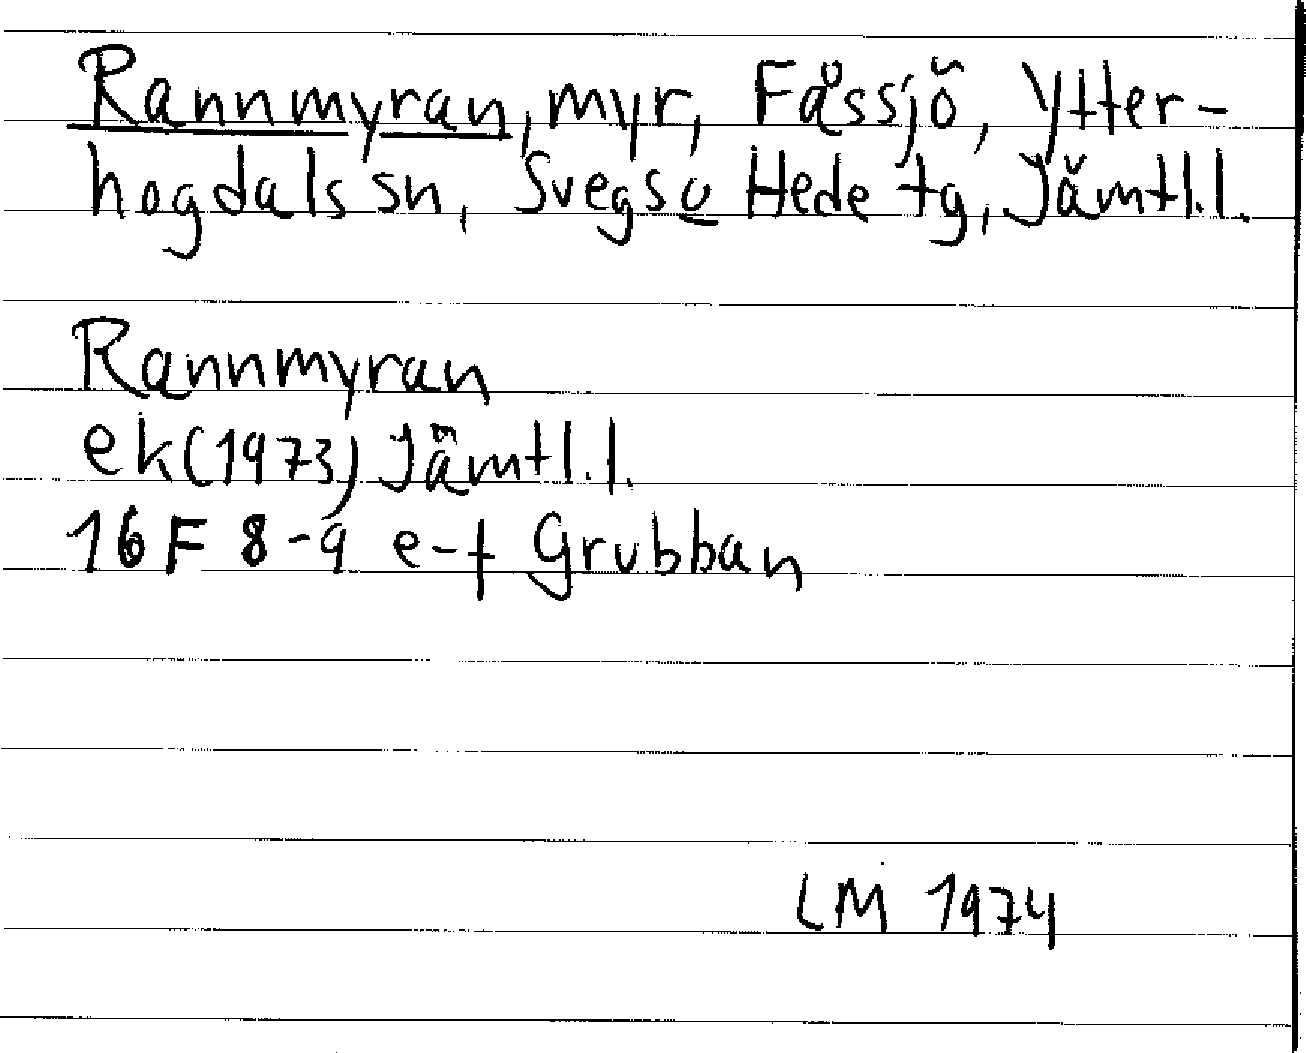 Rannmyran, myr, Fåssjö, Ytter-
hogdals sn, Svegs o Hede tg, Jämtl.l.
Rannmyran
ek(1973) Jämtl.l.
16 F 8-9 e-f Grubban
LM 1974